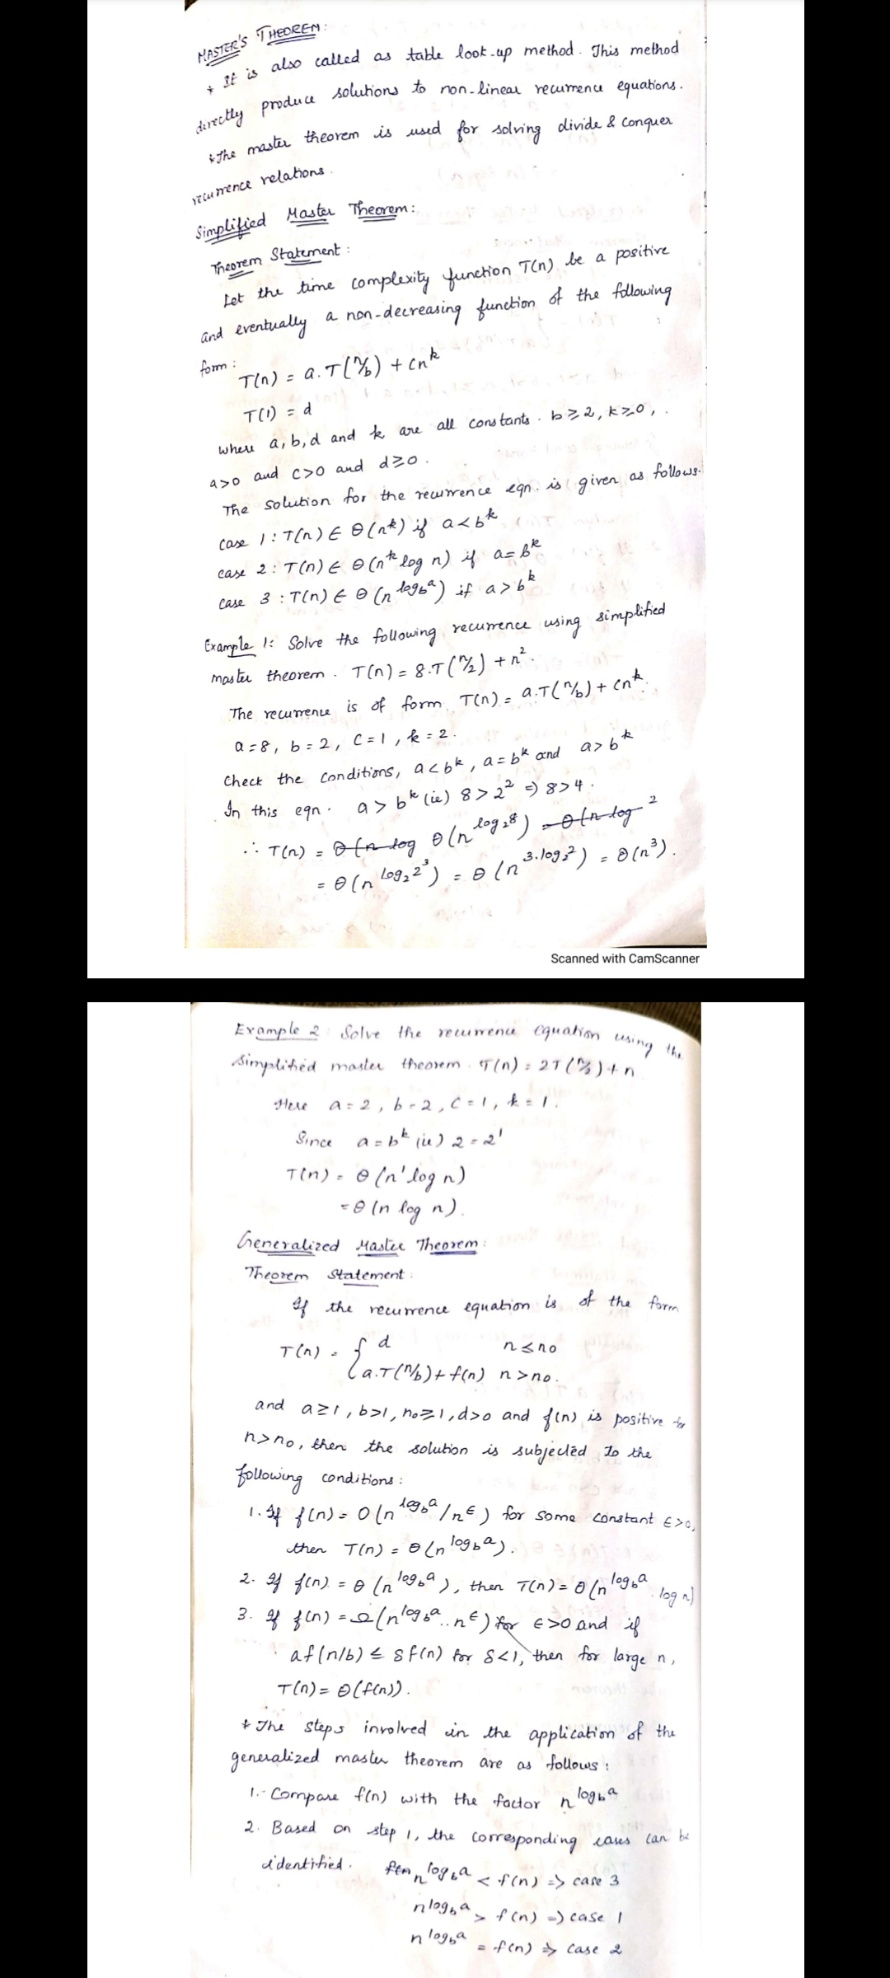 MASTER'S THEOREM:
* It is also called as table look-up method. This method
directly produce solutions to non-linear recurrence equations.
* The master theorem is used for solving divide & conquer
recurrence relations.
Simplified Master Theorem:
Theorem Statement:
Let the time complexity function T(n) be a positive
and eventually a non-decreasing function of the following
form:
T(n) = a.T(n/b) + cn^k
T(1) = d
where a,b,d and k are all constants. b≥2, k≥0,
a>0 and c>0 and d≥0.
The solution for the recurrence eqn. is given as follows.
case 1: T(n) ∈ θ(n^k) if a<b^k
case 2: T(n) ∈ θ(n^k log n) if a=b^k
case 3: T(n) ∈ θ(n^log_b a) if a>b^k
Example 1: Solve the following recurrence using simplified
master theorem. T(n) = 8.T(n/2) + n².
The recurrence is of form T(n) = a.T(n/b) + cn^k.
a=8, b=2, C=1, k=2.
Check the conditions, a<b^k, a=b^k and a>b^k
In this eqn. a>b^k (ie) 8>2² ⇒ 8>4.
∴ T(n) = θ(n^log_2 8)
= θ(n^log_2 2^3) = θ(n^3.log_2 2) = θ(n³).
Scanned with CamScanner
Example 2: Solve the recurrence equation using the
simplified master theorem. T(n) = 2T(n/2) + n
Here a=2, b=2, C=1, k=1.
Since a=b^k (ie) 2=2^1
T(n) = θ(n^1 log n)
= θ(n log n).
Generalized Master Theorem:
Theorem Statement:
If the recurrence equation is of the form
T(n) = { d n≤n0
a.T(n/b)+f(n) n>n0.
and a≥1, b>1, n0≥1, d>0 and f(n) is positive for
n>n0, then the solution is subjected to the
following conditions:
1. If f(n) = O(n^log_b a / n^ε) for some constant ε>0,
then T(n) = θ(n^log_b a).
2. If f(n) = θ(n^log_b a), then T(n) = θ(n^log_b a . log n)
3. If f(n) = Ω(n^log_b a .. n^ε) for ε>0 and if
af(n/b) ≤ δf(n) for δ<1, then for large n,
T(n) = θ(f(n)).
* The steps involved in the application of the
generalized master theorem are as follows:
1. Compare f(n) with the factor n^log_b a
2. Based on step 1, the corresponding cases can be
identified. n^log_b a < f(n) ⇒ case 3
n^log_b a > f(n) ⇒ case 1
n^log_b a = f(n) ⇒ case 2